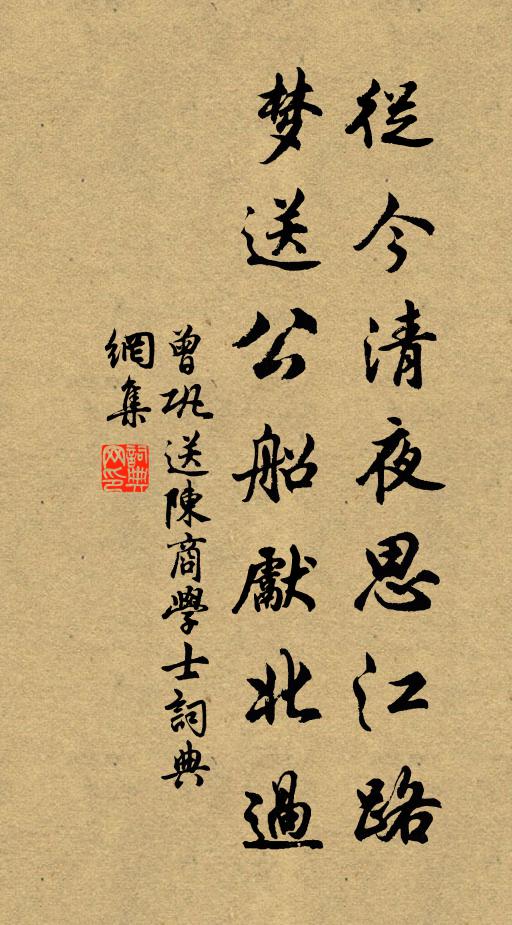 從今清夜思江路
梦送公船獻北過
曾巩送陳商學士詞典
網集
詞典網印